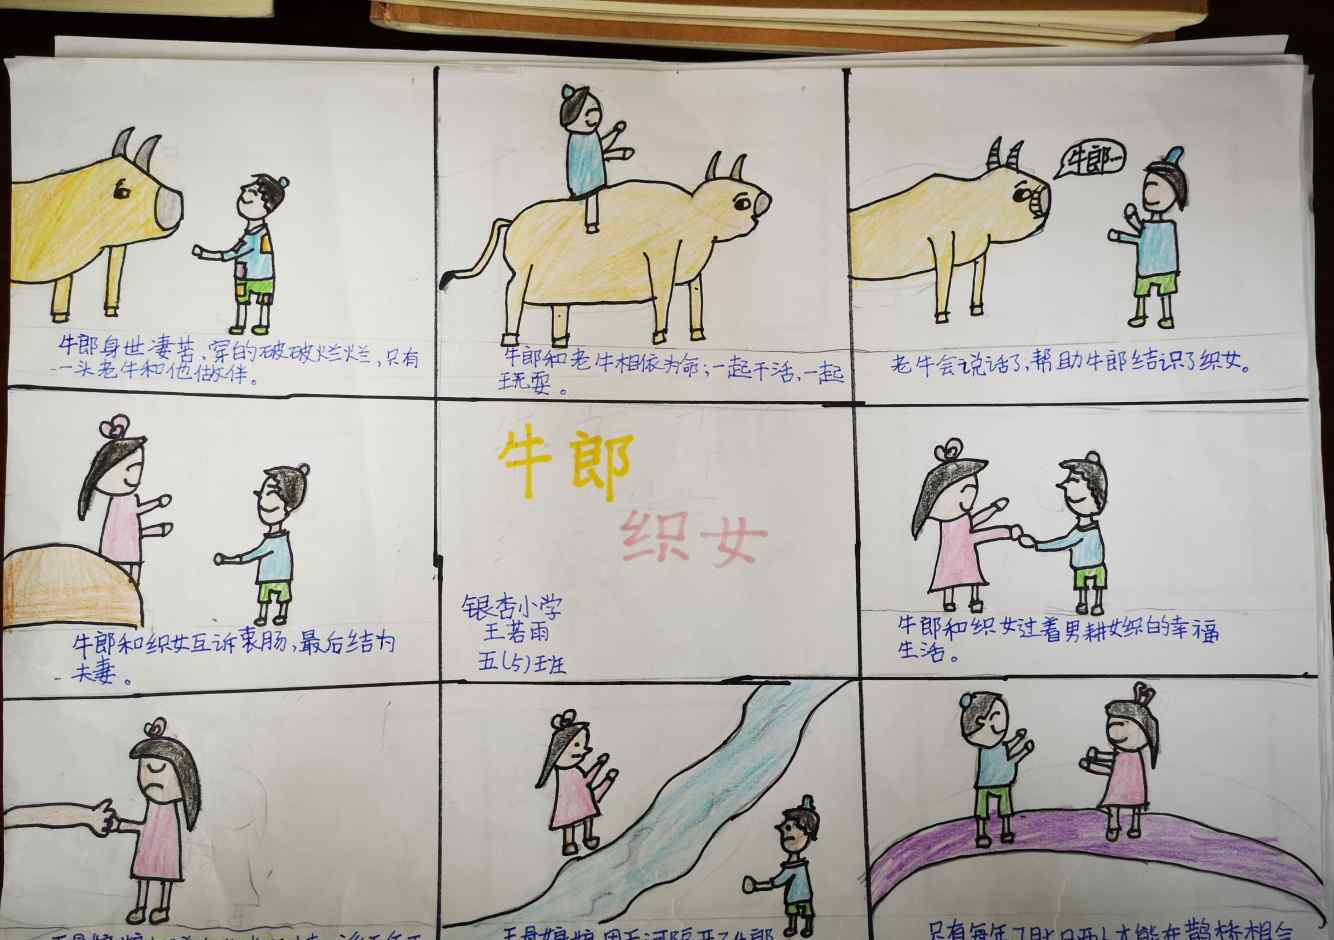 牛郎身世凄苦、穿的破破烂烂,只有
一头老牛和他做伴。
牛郎和老牛相依为命;一起干活,一起
玩耍。
牛郎…
老牛会说话了,帮助牛郎结识了织女。
牛郎和织女互诉衷肠,最后结为
夫妻。
牛郎
织女
银杏小学
王若雨
五(5)班
牛郎和织女过着男耕女织的幸福
生活。
王母娘娘用天河隔开了牛郎
只有每年7月七日两人才能在鹊桥相会